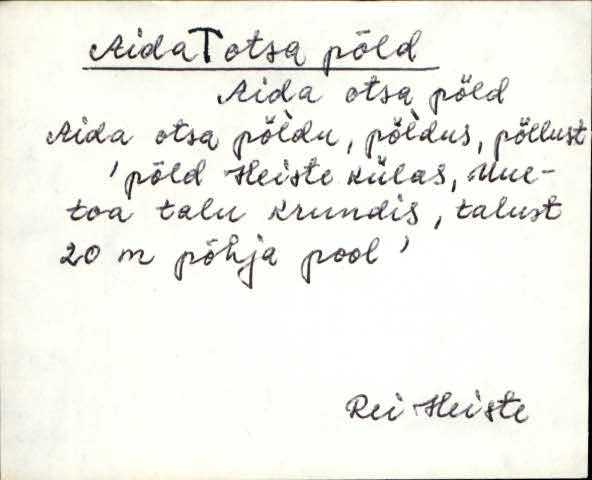 Aida otsa põld
Aida otsa põld
Aida otsa põl̀du, põl̀dus, põllust
'põld Heiste külas, Uue-
toa talu krundis, talust
20 m põhja pool'
Rei Heiste